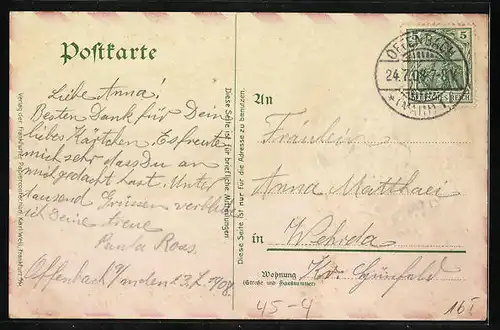 Postkarte
Liebe Anna!
Besten Dank für Dein
liebes Kärtchen. Es freute
mich sehr dass Du an
mich gedacht hast. Unter
tausend Grüssen verbleibe
ich Deine treue
Paula Roos.
Offenbach
Verlag der Frankfurter Papierconfection Karl Weil, Frankfurt
Diese Seite ist für briefliche Mitteilungen
Diese Seite ist nur für die Adresse zu benutzen.
OFFENBACH
24.7.08.7-8V.
* (MAIN)
5
An
Fräulein
Anna Matthaei
in Wehrda
Wohnung
(Straße und Hausnummer)
Kr. Hünfeld
45-4